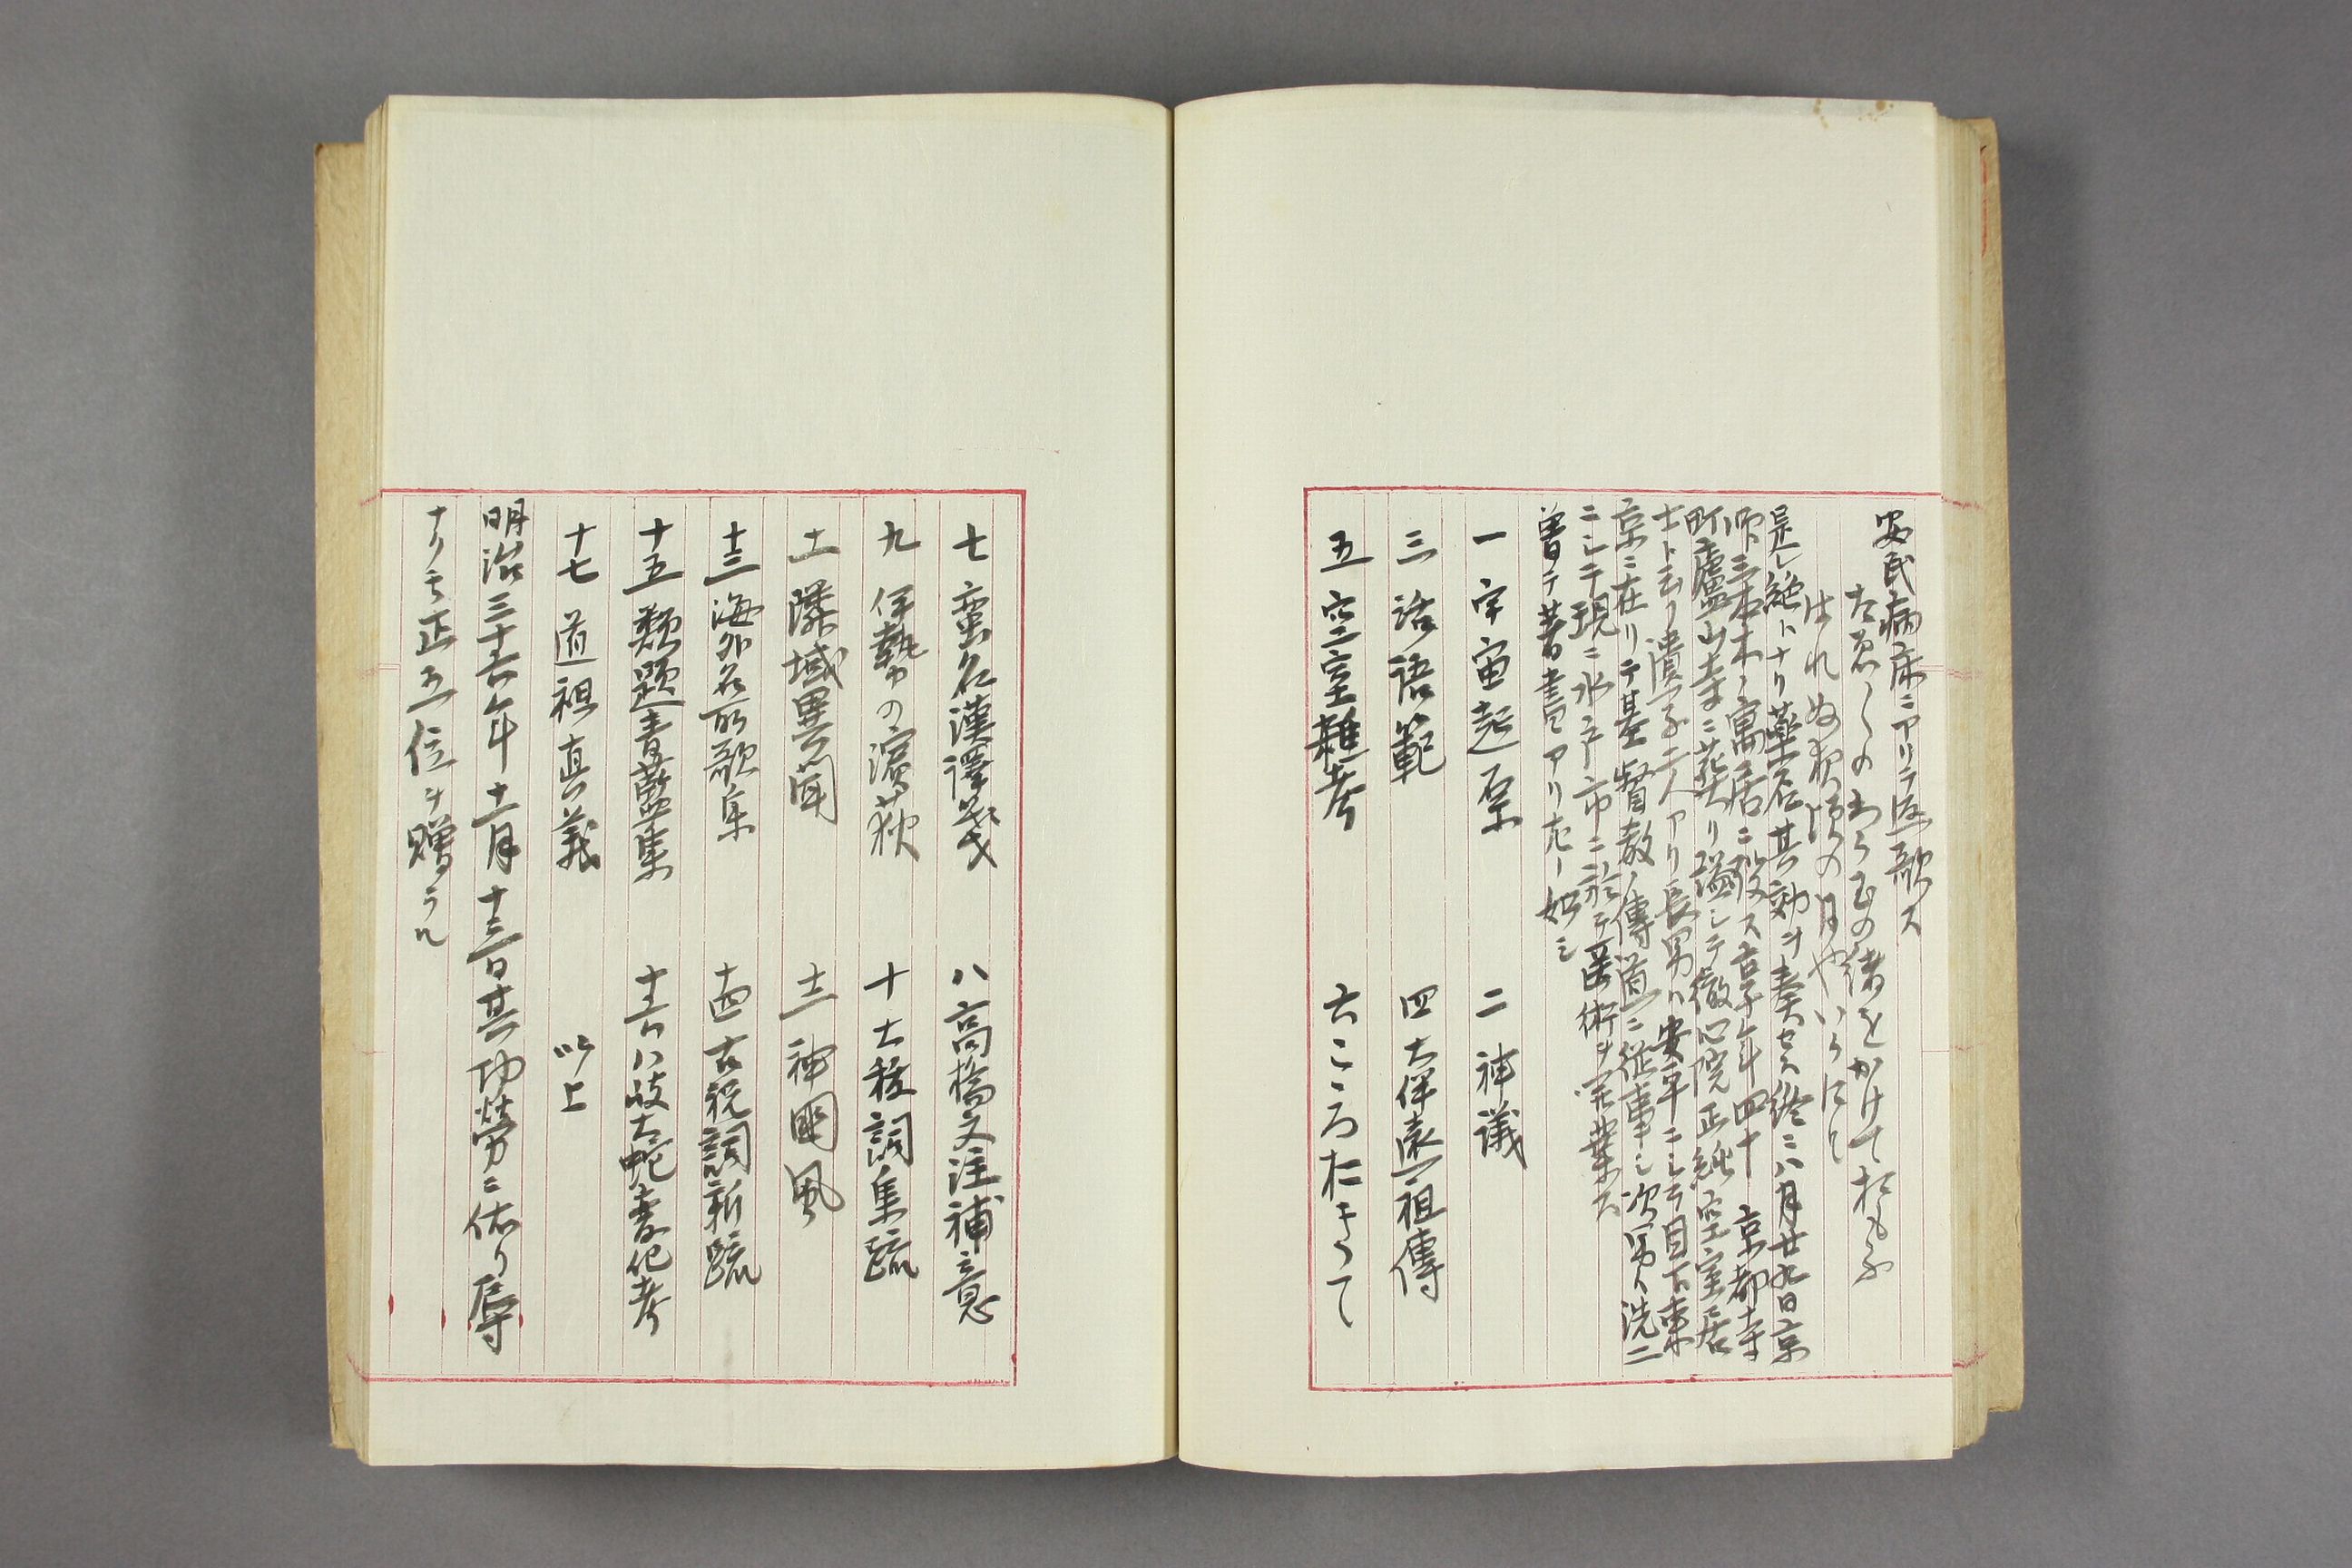 安民病床ニアリテ返歌ス
たゑ〱のわか玉の緒をかけておもふ
はれぬ夜頃の月やいかにと
是レ絶トナリ薬石其効ヲ奏セス終ニ八月廿九日京
師三本木ノ寓居ニ歿ス享年四十 京都寺
町廬山寺ニ葬リ謚シテ徹心院正純空室居
士ト云フ遺子二人アリ長男ハ安平ニシテ目下東
京ニ在リテ基督教ノ傳道ニ従事シ次男ハ洗二
ニシテ現ニ水戸市ニ於テ医術ヲ開業ス
曽テ著書アリ左ノ如シ
一 宇宙起原 二 神議
三 活語範 四 大伴遠祖傳
五 空室雜考 六 こころたきつて
七 蛮名漢譯箋 八 高橋文注補意
九 伊勢の濱荻 十 大祓詞集疏
十一 隣域異聞 十二 神國風
十三 海外名所歌集 十四 古祝詞新疏
十五 類題青藍集 十六 八岐大蛇変化考
十七 道祖真義 以上
明治三十六年十一月十三日其功勞ニ依リ辱
ナクモ正五位ヲ贈ラル